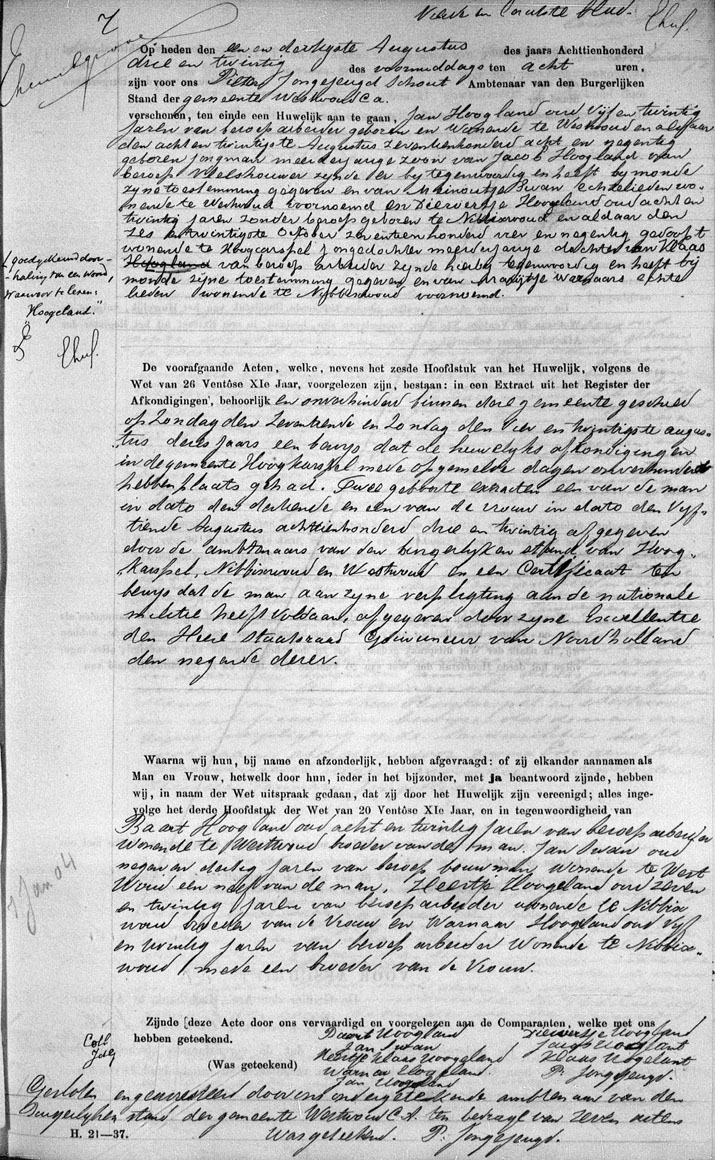 7
Op heden den een en dertigste Augustus des jaars Achttienhonderd
drie en twintig des voormiddags ten acht uren,
zijn voor ons Pieter Jongejeugd Schout Ambtenaar van den Burgerlijken
Stand der gemeente Westwoud c.a.
verschenen, ten einde een Huwelijk aan te gaan, Jan Hoogland oud Vijf en twintig
Jaren van beroep arbeider geboren en Wonende te Westwoud en aldaar
den acht en twintigste Augustus zeventienhonderd acht en negentig
geboren jongman meerderjarige zoon van Jacob Hoogland van
beroep zijnde hier bij tegenwoordig en heeft bij monde
zijne toestemming gegeven en van Meinoutje Swan echtelieden wo-
nende te Westwoud voornoemd en Dieuwertje Hoogeland oud acht en
twintig jaren zonder beroep geboren te Nibbixwoud en aldaar den
zes en twintigste October zeventienhonderd vier en negentig gedoopt
wonende te Hoogcarspel jongedochter meerderjarige dochter van Klaas
Hoogland van beroep arbeider zijnde hierbij tegenwoordig en heeft bij
monde zijne toestemming gegeven en van Warnaars echte
lieden wonende te Nibbixwoud voornoemd.
goedgekeurd door-
haling van een woord,
waarvoor te lezen:
"Hoogeland."
De voorafgaande Acten, welke, nevens het zesde Hoofdstuk van het Huwelijk, volgens de
Wet van 26 Ventôse XIe Jaar, voorgelezen zijn, bestaan: in een Extract uit het Register der
Afkondigingen, behoorlijk en onverhinderd binnen deze gemeente geschied
op Zondag den Zeventiende en Zondag den Vier en twintigste augus-
tus dezes jaars een bewijs dat de huwelijks afkondigingen
in de gemeente Hoogkarspel mede op gemelde dagen onverhinderd
hebben plaats gehad. Twee geboorte extracten een van de man
in dato den dertiende en een van de vrouw in dato den Vyf-
tiende Augustus achttienhonderd drie en twintig afgegeven
door de ambtenaars van den burgerlijken stand van Hoog-
karspel, Nibbixwoud en Westwoud en een Certificaat ten
bewijs dat de man aan zijne verpligting aan de nationale
militie heeft voldaan, afgegeven door zijne Excellentie
den Heere Staatsraad Gouverneur van Noordholland
den negende dezer.
Waarna wij hun, bij name en afzonderlijk, hebben afgevraagd: of zij elkander aannamen als
Man en Vrouw, hetwelk door hun, ieder in het bijzonder, met ja beantwoord zijnde, hebben
wij, in naam der Wet uitspraak gedaan, dat zij door het Huwelijk zijn vereenigd; alles inge-
volge het derde Hoofdstuk der Wet van 20 Ventôse XIe Jaar, en in tegenwoordigheid van
Baart Hoogland oud acht en twintig jaren van beroep arbeider
wonende te Westwoud broeder van de man. Jan Swan oud
negen en dertig jaren van beroep bouwman, wonende te West
woud een neef van de man, Heertje Hoogeland oud zeven
en twintig jaren van beroep arbeider wonende te Nibbix
woud broeder van de Vrouw en Warnaar Hoogland oud Vijf
en twintig jaren van beroep arbeider Wonende te Nibbix-
woud mede een broeder van de Vrouw.
1 Jan 04
Zijnde deze Acte door ons vervaardigd en voorgelezen aan de Comparanten, welke met ons
hebben geteekend.
(Was geteekend)
Baart Hoogland
Jan Swan
Heertje Klaas Hoogland
Warnar Hoogeland.
Jan Hoogland
Diewertje Hoogland
Jacob Hooglant
Klaas Hogelant
P. Jongejeugd.
Gesloten en gearresteerd door ons ondergetekende ambtenaar van den
Burgerlijken stand der gemeente Westwoud C.A. ten bedrage van zeven actens
Was geteekend. P. Jongejeugd.
H. 21—37.